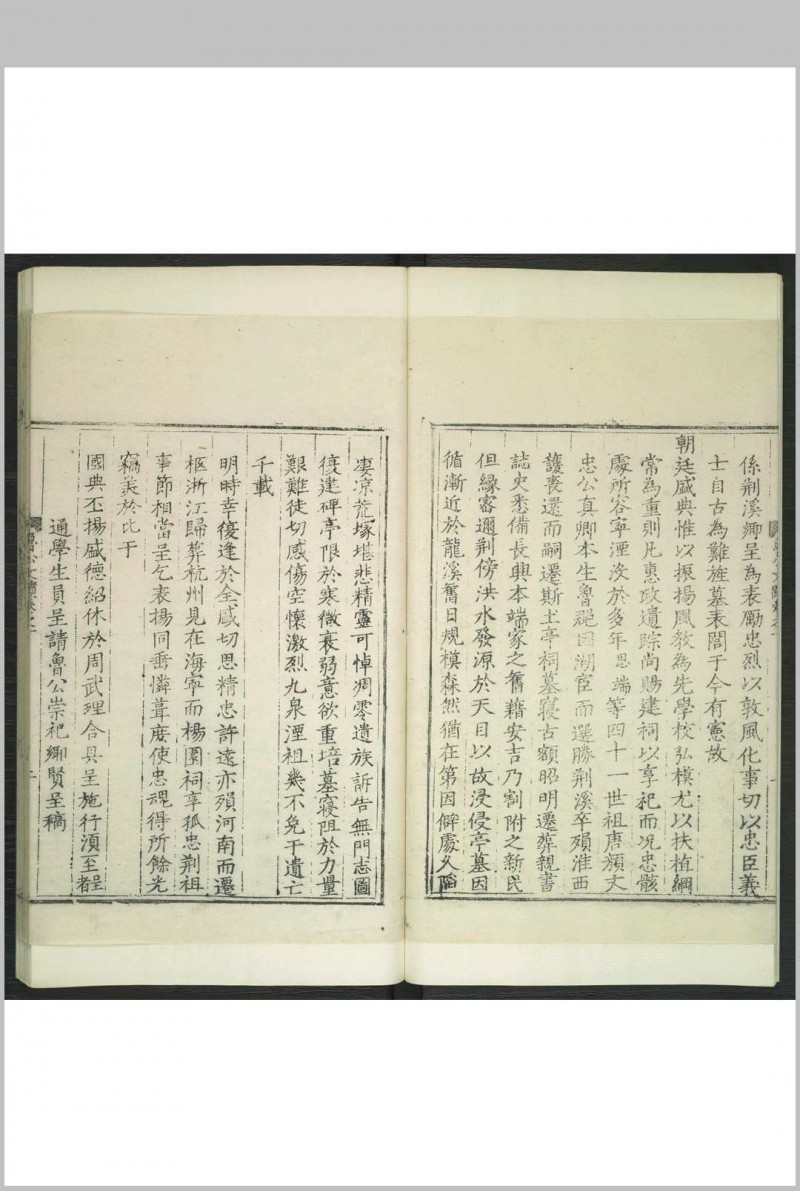 係荆溪鄉呈為表勵忠烈以敦風化事切以忠臣義
士自古為難旌墓表閭于今有憲故
朝廷盛典惟以振揚風教為先學校弘模尤以扶植綱
常為重則凡惠政遺踪尚賜建祠以享祀而况忠骸
處所容寧湮沒於多年思端等四十一世祖唐顏文
忠公真卿本生魯邑因湖宦而選勝荆溪卒殞淮西
護喪還而嗣遷斯土亭祠墓寢古額昭明遷葬親書
誌史悉備長興本端家之舊籍安吉乃割附之新民
但緣密邇荆傍洪水發源於天目以故浸侵亭墓因
循漸近於龍溪舊日規模森然猶在第因僻處久陷
凄凉荒塚堪悲精靈可悼凋零遺族訴告無門志圖
復建碑亭限於寒微衰弱意欲重培墓寢阻於力量
艱難徒切感傷空懷激烈九泉湮祖幾不免于遺亡
千載
明時幸復逢於全盛切思精忠許遠亦殞河南而遷
柩浙江歸葬杭州見在海寧而楊園祠享孤忠荆祖
事節相當呈乞表揚同垂憐葺庶使忠魂得所餘光
竊美於比干
國典丕揚盛德紹休於周武理合具呈施行湏至呈者
通學生員呈請魯公崇祀鄉賢呈稿